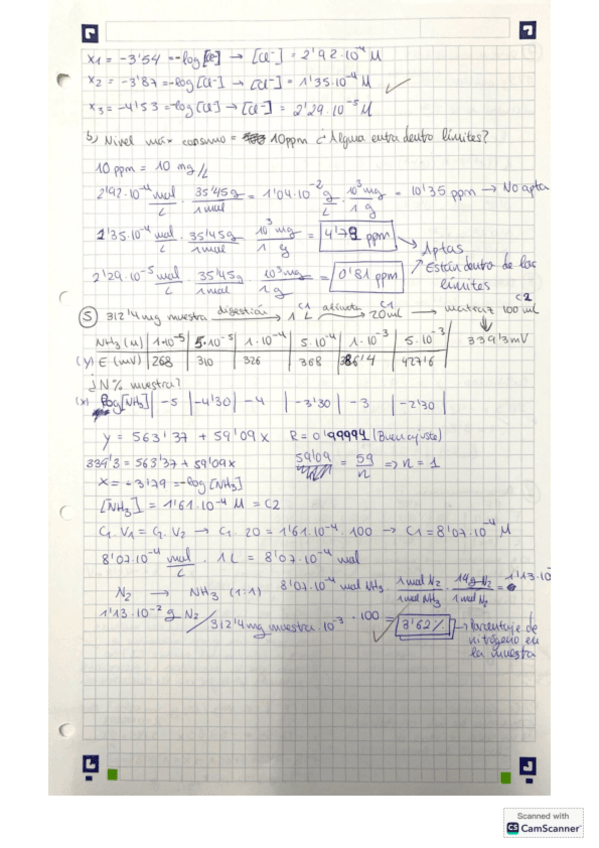 x1 = -3'54 = -log [Cl-] → [Cl-] = 2'92·10-4 M
x2 = -3'87 = -log [Cl-] → [Cl-] = 1'35·10-4 M
x3 = -4'53 = -log [Cl-] → [Cl-] = 2'29·10-5 M
b) Nivel máx consumo = 10ppm ¿Alguna entra dentro límites?
10 ppm = 10 mg/L
2'92·10-4 mol/L · 35'45g/1mol = 1'04·10-2 g/L · 10^3 mg/1 g = 10'35 ppm → No apta
1'35·10-4 mol/L · 35'45g/1mol · 10^3 mg/1 g = 4'79 ppm
→ Aptas
2'29·10-5 mol/L · 35'45g/1mol · 10^3 mg/1g = 0'81 ppm
↗ Están dentro de los límites
5) 312'4 mg muestra digestión → 1 L C1 alícuota → 20ml C1 → matraz 100 ml C2
NH3 (M) | 1·10-5 | 5·10-5 | 1·10-4 | 5·10-4 | 1·10-3 | 5·10-3 | 339'3mV
(y) E (mV) | 268 | 310 | 326 | 368 | 386'4 | 427'6
¿N% muestra?
(x) log[NH3] | -5 | -4'30 | -4 | -3'30 | -3 | -2'30
y = 563'37 + 59'09x R = 0'99994 (Buen ajuste)
339'3 = 563'37 + 59'09x 59'09 = 59/n => n = 1
x = -3'79 = -log[NH3]
[NH3] = 1'61·10-4 M = C2
C1·V1 = C2·V2 → C1·20 = 1'61·10-4·100 → C1 = 8'07·10-4 M
8'07·10-4 mol/L · 1 L = 8'07·10-4 mol
N2 → NH3 (1:1) 8'07·10-4 mol NH3 · 1 mol N2/1 mol NH3 · 14g N2/1 mol N2 = 1'13·10
1'13·10-2 g N2 / 312'4 mg muestra·10-3 · 100 = 3'62% → Porcentaje de nitrógeno en la muestra
Scanned with
CS CamScanner